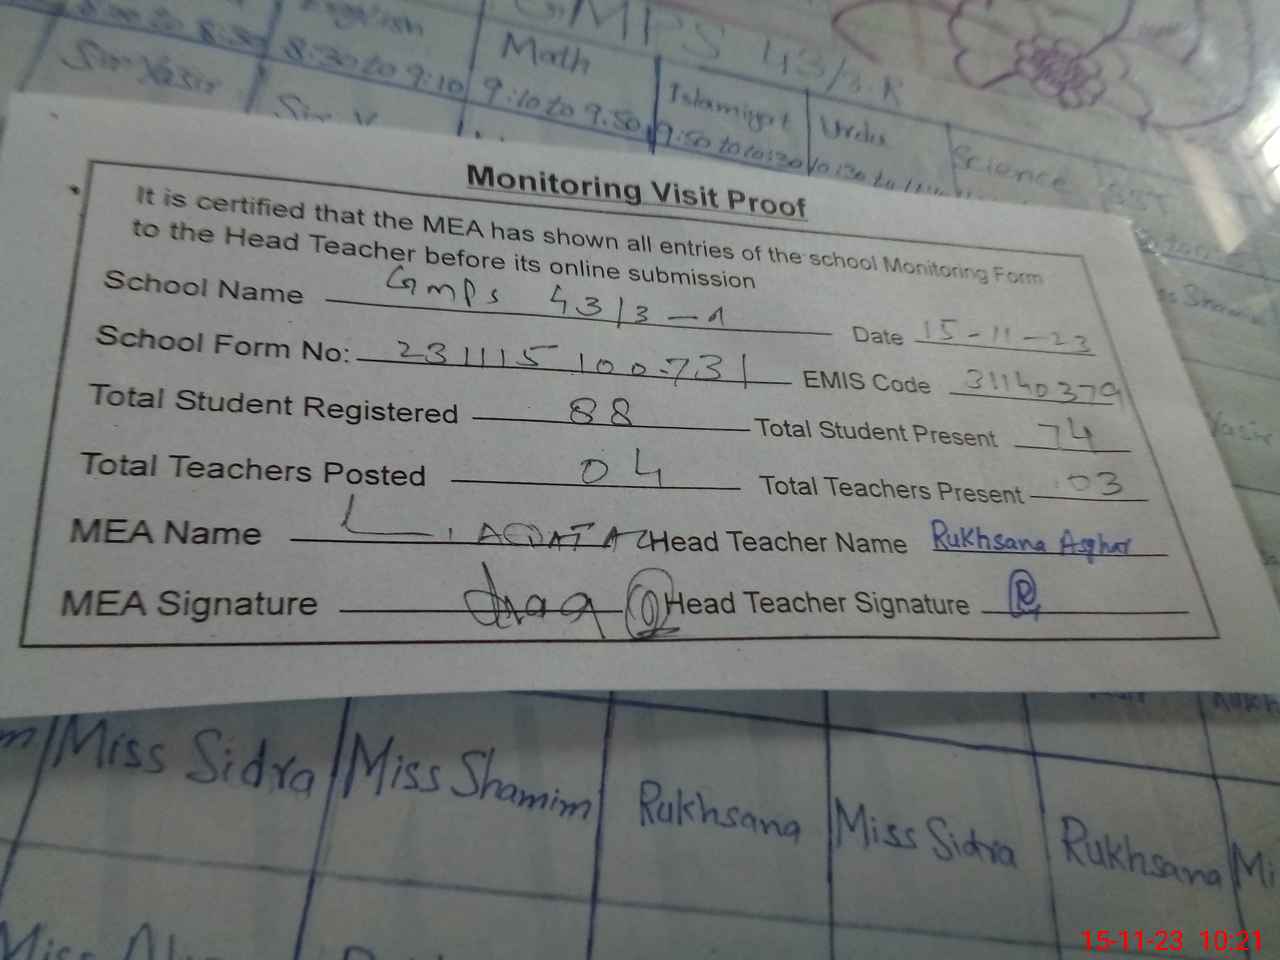 GMPS 43/3.R
English Math Islamiyat Urdu Science
8:30 to 9:10 9:10 to 9:50 9:50 to 10:20 10:20 to
Sir Yasir Sir Y
Monitoring Visit Proof
It is certified that the MEA has shown all entries of the school Monitoring Form
to the Head Teacher before its online submission
School Name Gmps 43/3-R Date 15-11-23
School Form No: 231115100731 EMIS Code 31140379
Total Student Registered 88 Total Student Present 74
Total Teachers Posted 04 Total Teachers Present 03
MEA Name LIAQAT AZ Head Teacher Name Rukhsana Asghar
MEA Signature Head Teacher Signature R
Miss Sidra Miss Shamim Rukhsana Miss Sidra Rukhsana Mi
Miss
15-11-23 10:21